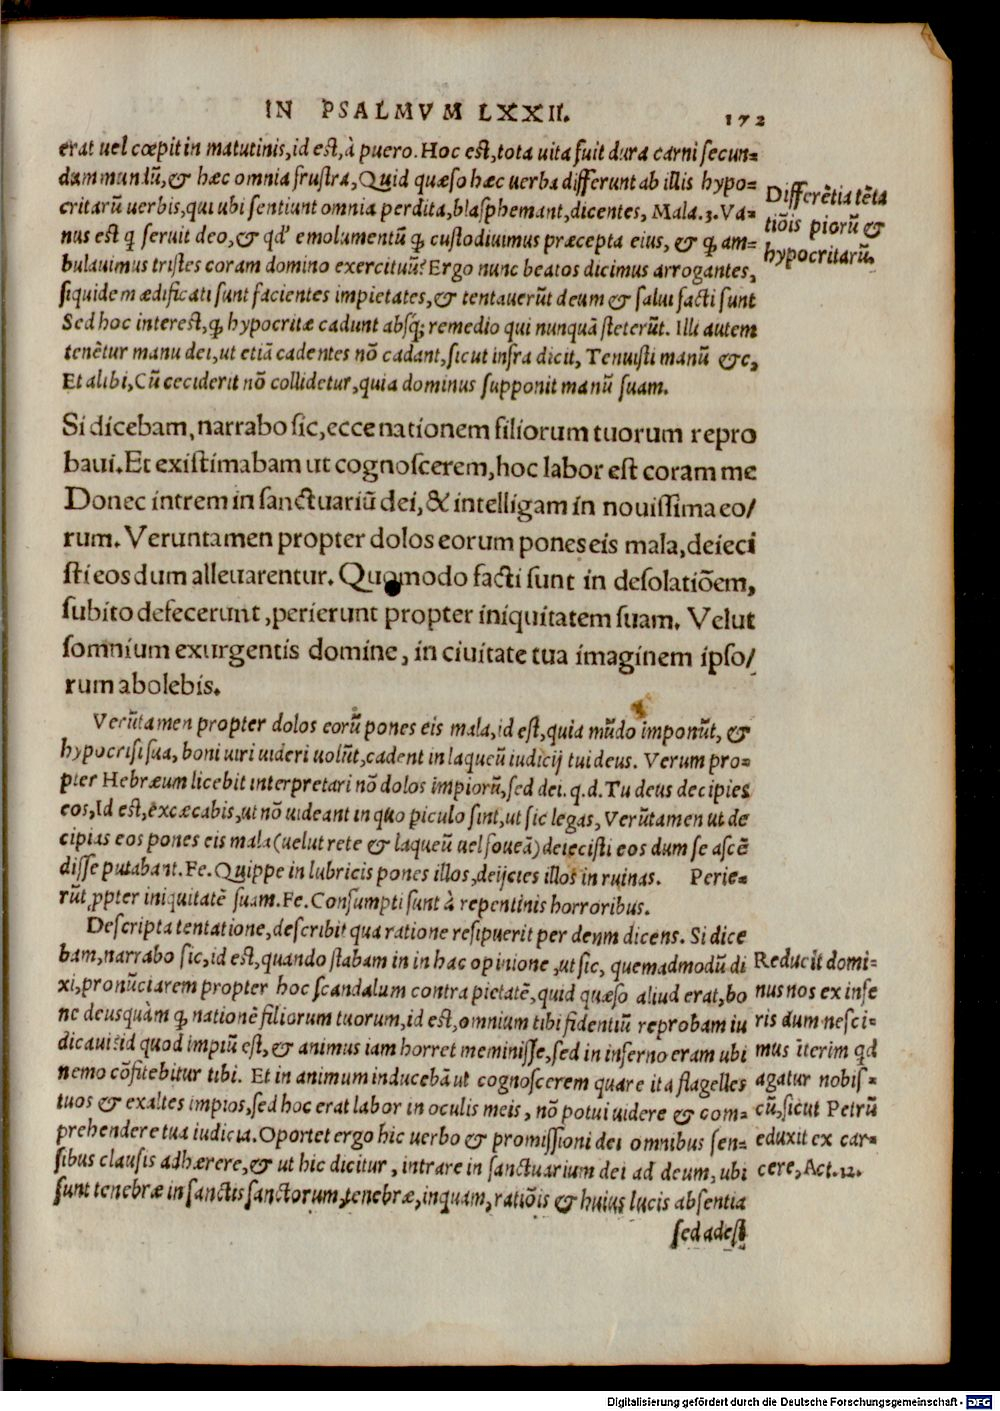 IN PSALMVM LXXII.
172
erat uel cœpit in matutinis, id est, à puero. Hoc est, tota uita fuit dura carni secun=
dum mundū, & hæc omnia frustra, Quid quæso hæc uerba differunt ab illis hypo=
critarū uerbis, qui ubi sentiunt omnia perdita, blasphemant, dicentes, Mala. 3. Va=
nus est q̃ seruit deo, & qd' emolumentū q̃ custodiuimus præcepta eius, & q̃ am=
bulauimus tristes coram domino exercituū? Ergo nunc beatos dicimus arrogantes,
siquidem ædificati sunt facientes impietates, & tentauerūt deum & salui facti sunt
Sed hoc interest, q̃ hypocritæ cadunt absq; remedio qui nunquā steterūt. Illi autem
tenētur manu dei, ut etiā cadentes nō cadant, sicut infra dicit, Tenuisti manū &c,
Et alibi, Cū ceciderit nō collidetur, quia dominus supponit manū suam.
Differētia tēta
tiōis piorū &
hypocritarū.
Si dicebam, narrabo sic, ecce nationem filiorum tuorum repro
baui. Et existimabam ut cognoscerem, hoc labor est coram me
Donec intrem in sanctuariū dei, & intelligam in nouissima eo/
rum. Veruntamen propter dolos eorum pones eis mala, deieci
sti eos dum alleuarentur. Quomodo facti sunt in desolatiōem,
subito defecerunt, perierunt propter iniquitatem suam. Velut
somnium exurgentis domine, in ciuitate tua imaginem ipso/
rum abolebis.
Verūtamen propter dolos eorū pones eis mala, id est, quia mūdo imponūt, &
hypocrisi sua, boni uiri uideri uolūt, cadent in laqueū iudicij tui deus. Verum pro=
pter Hebræum licebit interpretari nō dolos impiorū, sed dei. q.d. Tu deus decipies
eos, Id est, excæcabis, ut nō uideant in quo piculo sint, ut sic legas, Verūtamen ut de
cipias eos pones eis mala (uelut rete & laqueū uel foueā) deiecisti eos dum se ascē
disse putabant. Fe. Quippe in lubricis pones illos, deijcies illos in ruinas. Perie=
rūt ppter iniquitatē suam. Fe. Consumpti sunt à repentinis horroribus.
Descripta tentatione, describit qua ratione resipuerit per deum dicens. Si dice
bam, narrabo sic, id est, quando stabam in in hac opinione, ut sic, quemadmodū di
xi, pronūciarem propter hoc scandalum contra pietatē, quid quæso aliud erat, bo
ne deus quàm q̃ nationē filiorum tuorum, id est, omnium tibi fidentiū reprobam iu
dicaui: id quod impiū est, & animus iam horret meminisse, sed in inferno eram ubi
nemo cōfitebitur tibi. Et in animum inducebā ut cognoscerem quare ita flagelles
tuos & exaltes impios, sed hoc erat labor in oculis meis, nō potui uidere & com=
prehendere tua iudicia. Oportet ergo hic uerbo & promissioni dei omnibus sen=
sibus clausis adhærere, & ut hic dicitur, intrare in sanctuarium dei ad deum, ubi
sunt tenebræ in sanctis sanctorum, tenebræ, inquam, ratiōis & huius lucis absentia
sed adest
Reducit domi=
nus nos ex infe
ris dum nesci=
mus iterim qd
agatur nobis=
cū, sicut Petrū
eduxit ex car=
cere, Act. 12.
Digitalisierung gefördert durch die Deutsche Forschungsgemeinschaft - DFG